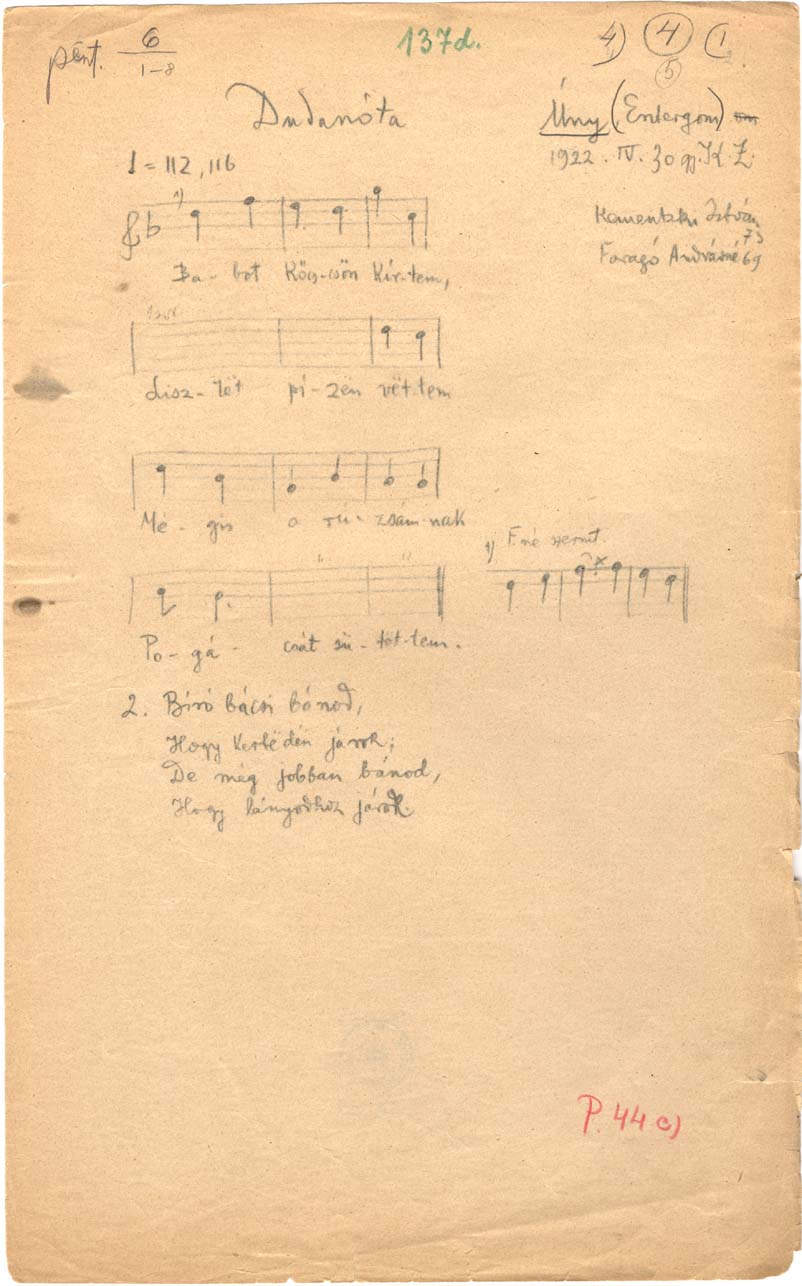 pént. 6
1-8
137d.
4) 4 (1
5
Dudanóta
Úny (Esztergom)
1922. IV. 30 gy. K. Z.
♩ = 112, 116
Kamentzky István 73
Faragó Andrásné 69
1)
Ba-bot kös-csön kír-tem,
Lisz-tët pí-zën vët-tem
Mé-gis a rú-zsám-nak
1) F.né szerint.
Po-gá-csát sü-töt-tem.
2. Bíró bácsi bánod,
Hogy kertëdën járok;
De még jobban bánod,
Hogy lányodhoz járok.
P. 44 c)